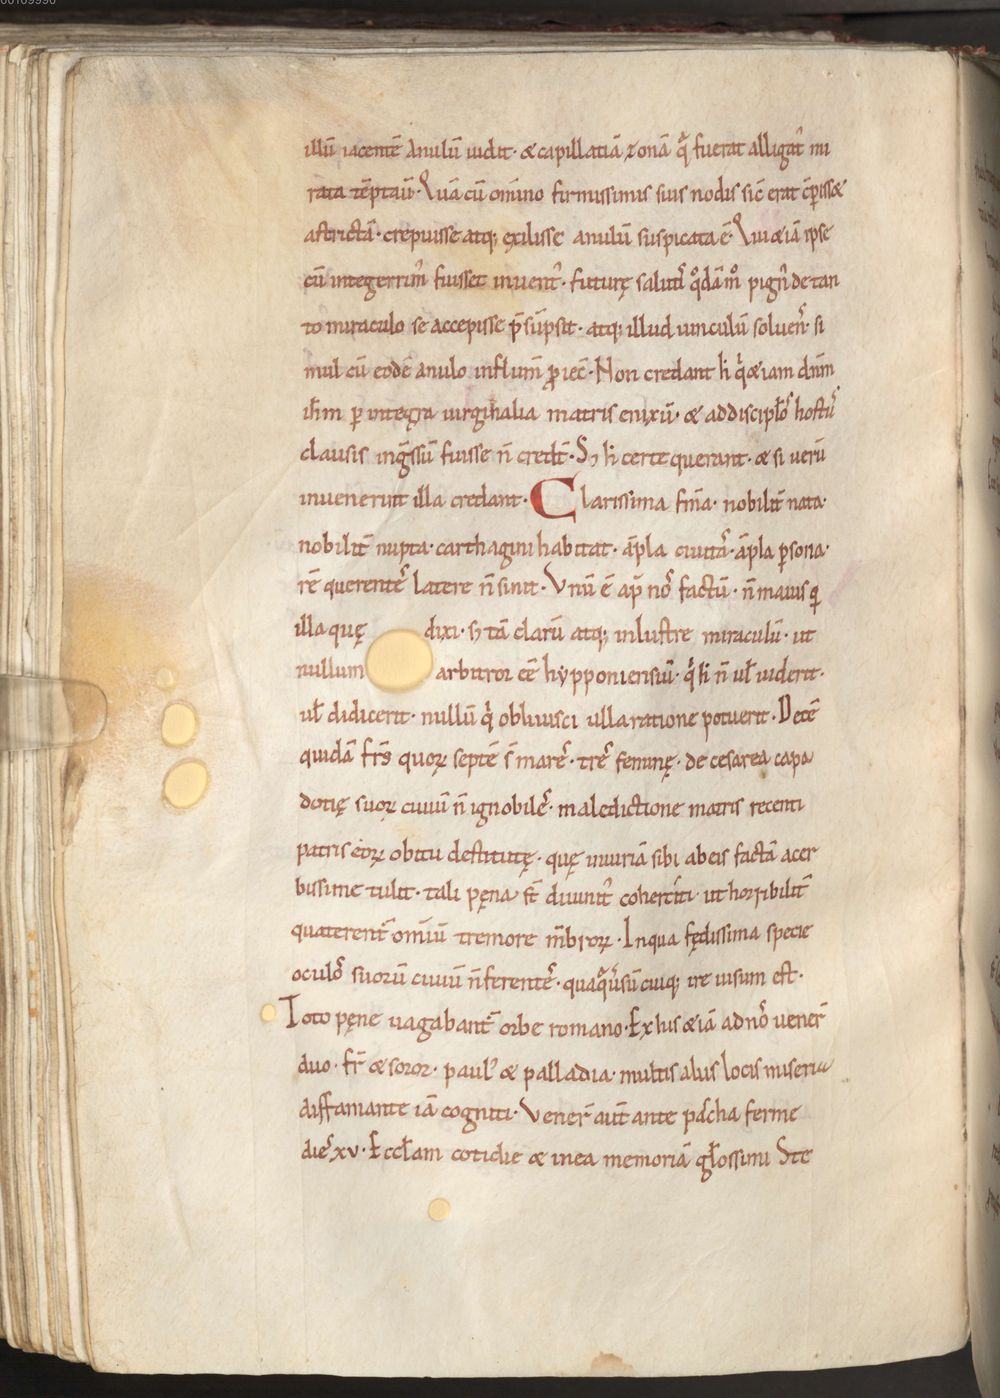 illū iacentē Anulū uidit· & capillatiā zonā q̄ fuerat alligat᷒ mi
rata tēptauit̄· Quā cū om̄ino firmissimis suis nodis sic̄ erat cp̄issæ
astrictā· crepuisse atq; exilisse anulū suspicata ē· Qui & iā ipse
cū integerrim᷒ fuisset inuent᷒· futurę salutis̄ qͦdāmͦ pign᷒ de tan
to miraculo se accepisse p̄sūpsit· atq; illud uinculū soluen᷒· si
mul cū eodē anulo influm̄ p̄iec̄· Non credant hi q̓ &iam dn̄m
ih̄m ꝑ integra uirginalia matris enixū· & addiscipl̄oˢ hostiˢ
clausis ingr̄ssū fuisse n̄ cred̄t· S; h̓ certe querant· & si uerū
inuenerint illa credant· Clarissima fin̄a· nobilit̄ nata·
nobilit̄ nupta· carthagini habitat· āpla ciuitāˢ· āpla ꝑsona·
rē querenteˢ latere n̄ sinit· Vnū ē ap̄ noˢ factū· n̄ maius q̄
illa quę dixi· s; tā clarū atq; inlustre miraculū· ut
nullum arbitror ēē hypponiensiū· q̓ h̓ n̄ ul̄ uiderit·
ul̄ didicerit· nullū q̓ obliuisci ulla ratione potuerit· Decē
quidā fr̄s quoꝝ septē s̄ mareˢ· treˢ feminę· de cesarea capa
dotię suoꝝ ciuiū n̄ ignobileˢ· maledictione matris recenti
patris eoꝝ obitu destitutę· quę iniuriā sibi abeis factā acer
bissime tulit· tali pęna st̄ diuinit᷒ coherciti· ut horribilit̄
quaterent᷒ om̄iū tremore m̄broꝝ· Inqua fędissima specie
oculoˢ suorū ciuiū n̄ ferenteˢ· quaq̄uͦsū cuiq; ire uisum est·
Toto pęne uagabant᷒ orbe romano· Ex his &iā ad noˢ uener̄
duo· fr̄ & soror· paul᷒ & palladia· multis aliis locis miseria
diffamante iā cogniti· Vener̄ aut̄ ante pascha ferme
dieˢ xv· Eccl̄am cotidie & inea memoriā gl̄ossimi Ste